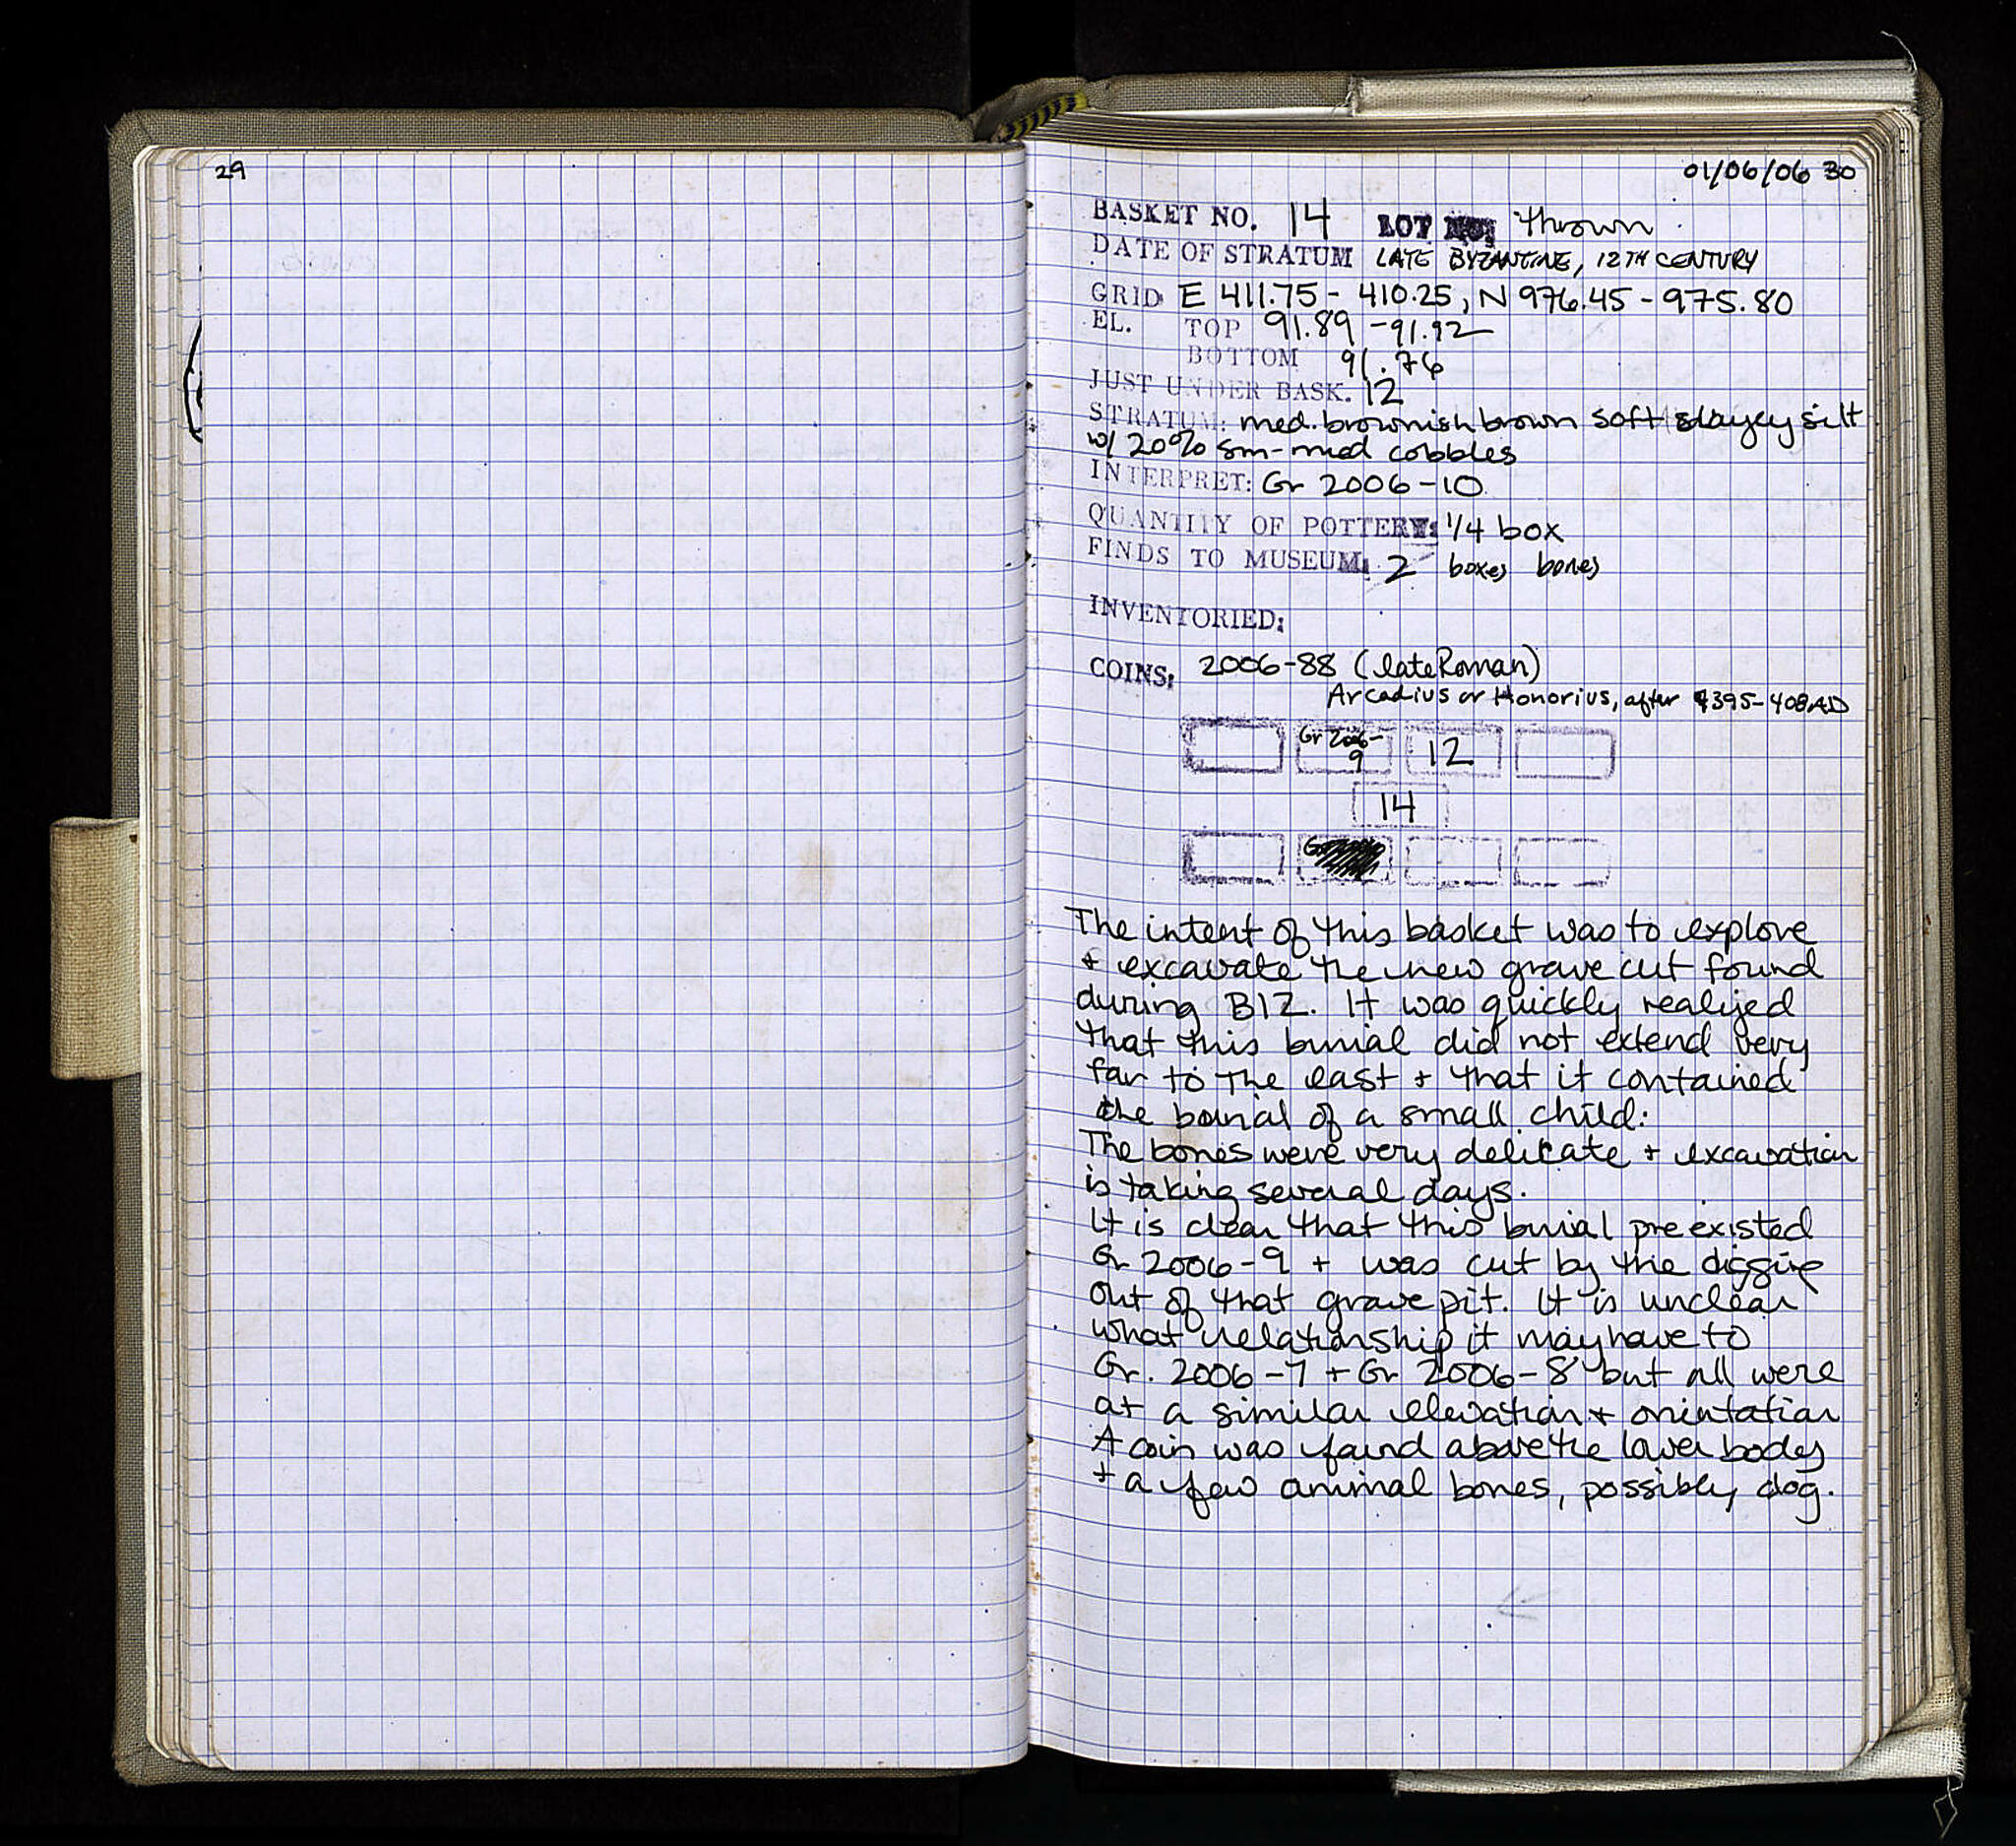 29
01/06/06 30
BASKET NO. 14 LOT NO: thrown
DATE OF STRATUM LATE BYZANTINE, 12TH CENTURY
GRID E 411.75 - 410.25, N 976.45 - 975.80
EL. TOP 91.89 - 91.92
BOTTOM 91.76
JUST UNDER BASK. 12
STRATUM: med. brownish brown soft clayey silt
w/ 20% sm-med cobbles
INTERPRET: Gr 2006-10
QUANTITY OF POTTERY: 1/4 box
FINDS TO MUSEUM: 2 boxes bones
INVENTORIED:
COINS: 2006-88 (late Roman)
Arcadius or Honorius, after 395-408 AD
Gr 2006-
9
12
14
The intent of this basket was to explore
+ excavate the new grave cut found
during B12. It was quickly realized
that this burial did not extend very
far to the east + that it contained
the burial of a small child.
The bones were very delicate + excavation
is taking several days.
It is clear that this burial pre existed
Gr 2006-9 + was cut by the digging
out of that grave pit. It is unclear
what relationship it may have to
Gr. 2006-7 + Gr 2006-8 but all were
at a similar elevation + orientation
A coin was found above the lower body
+ a few animal bones, possibly dog.